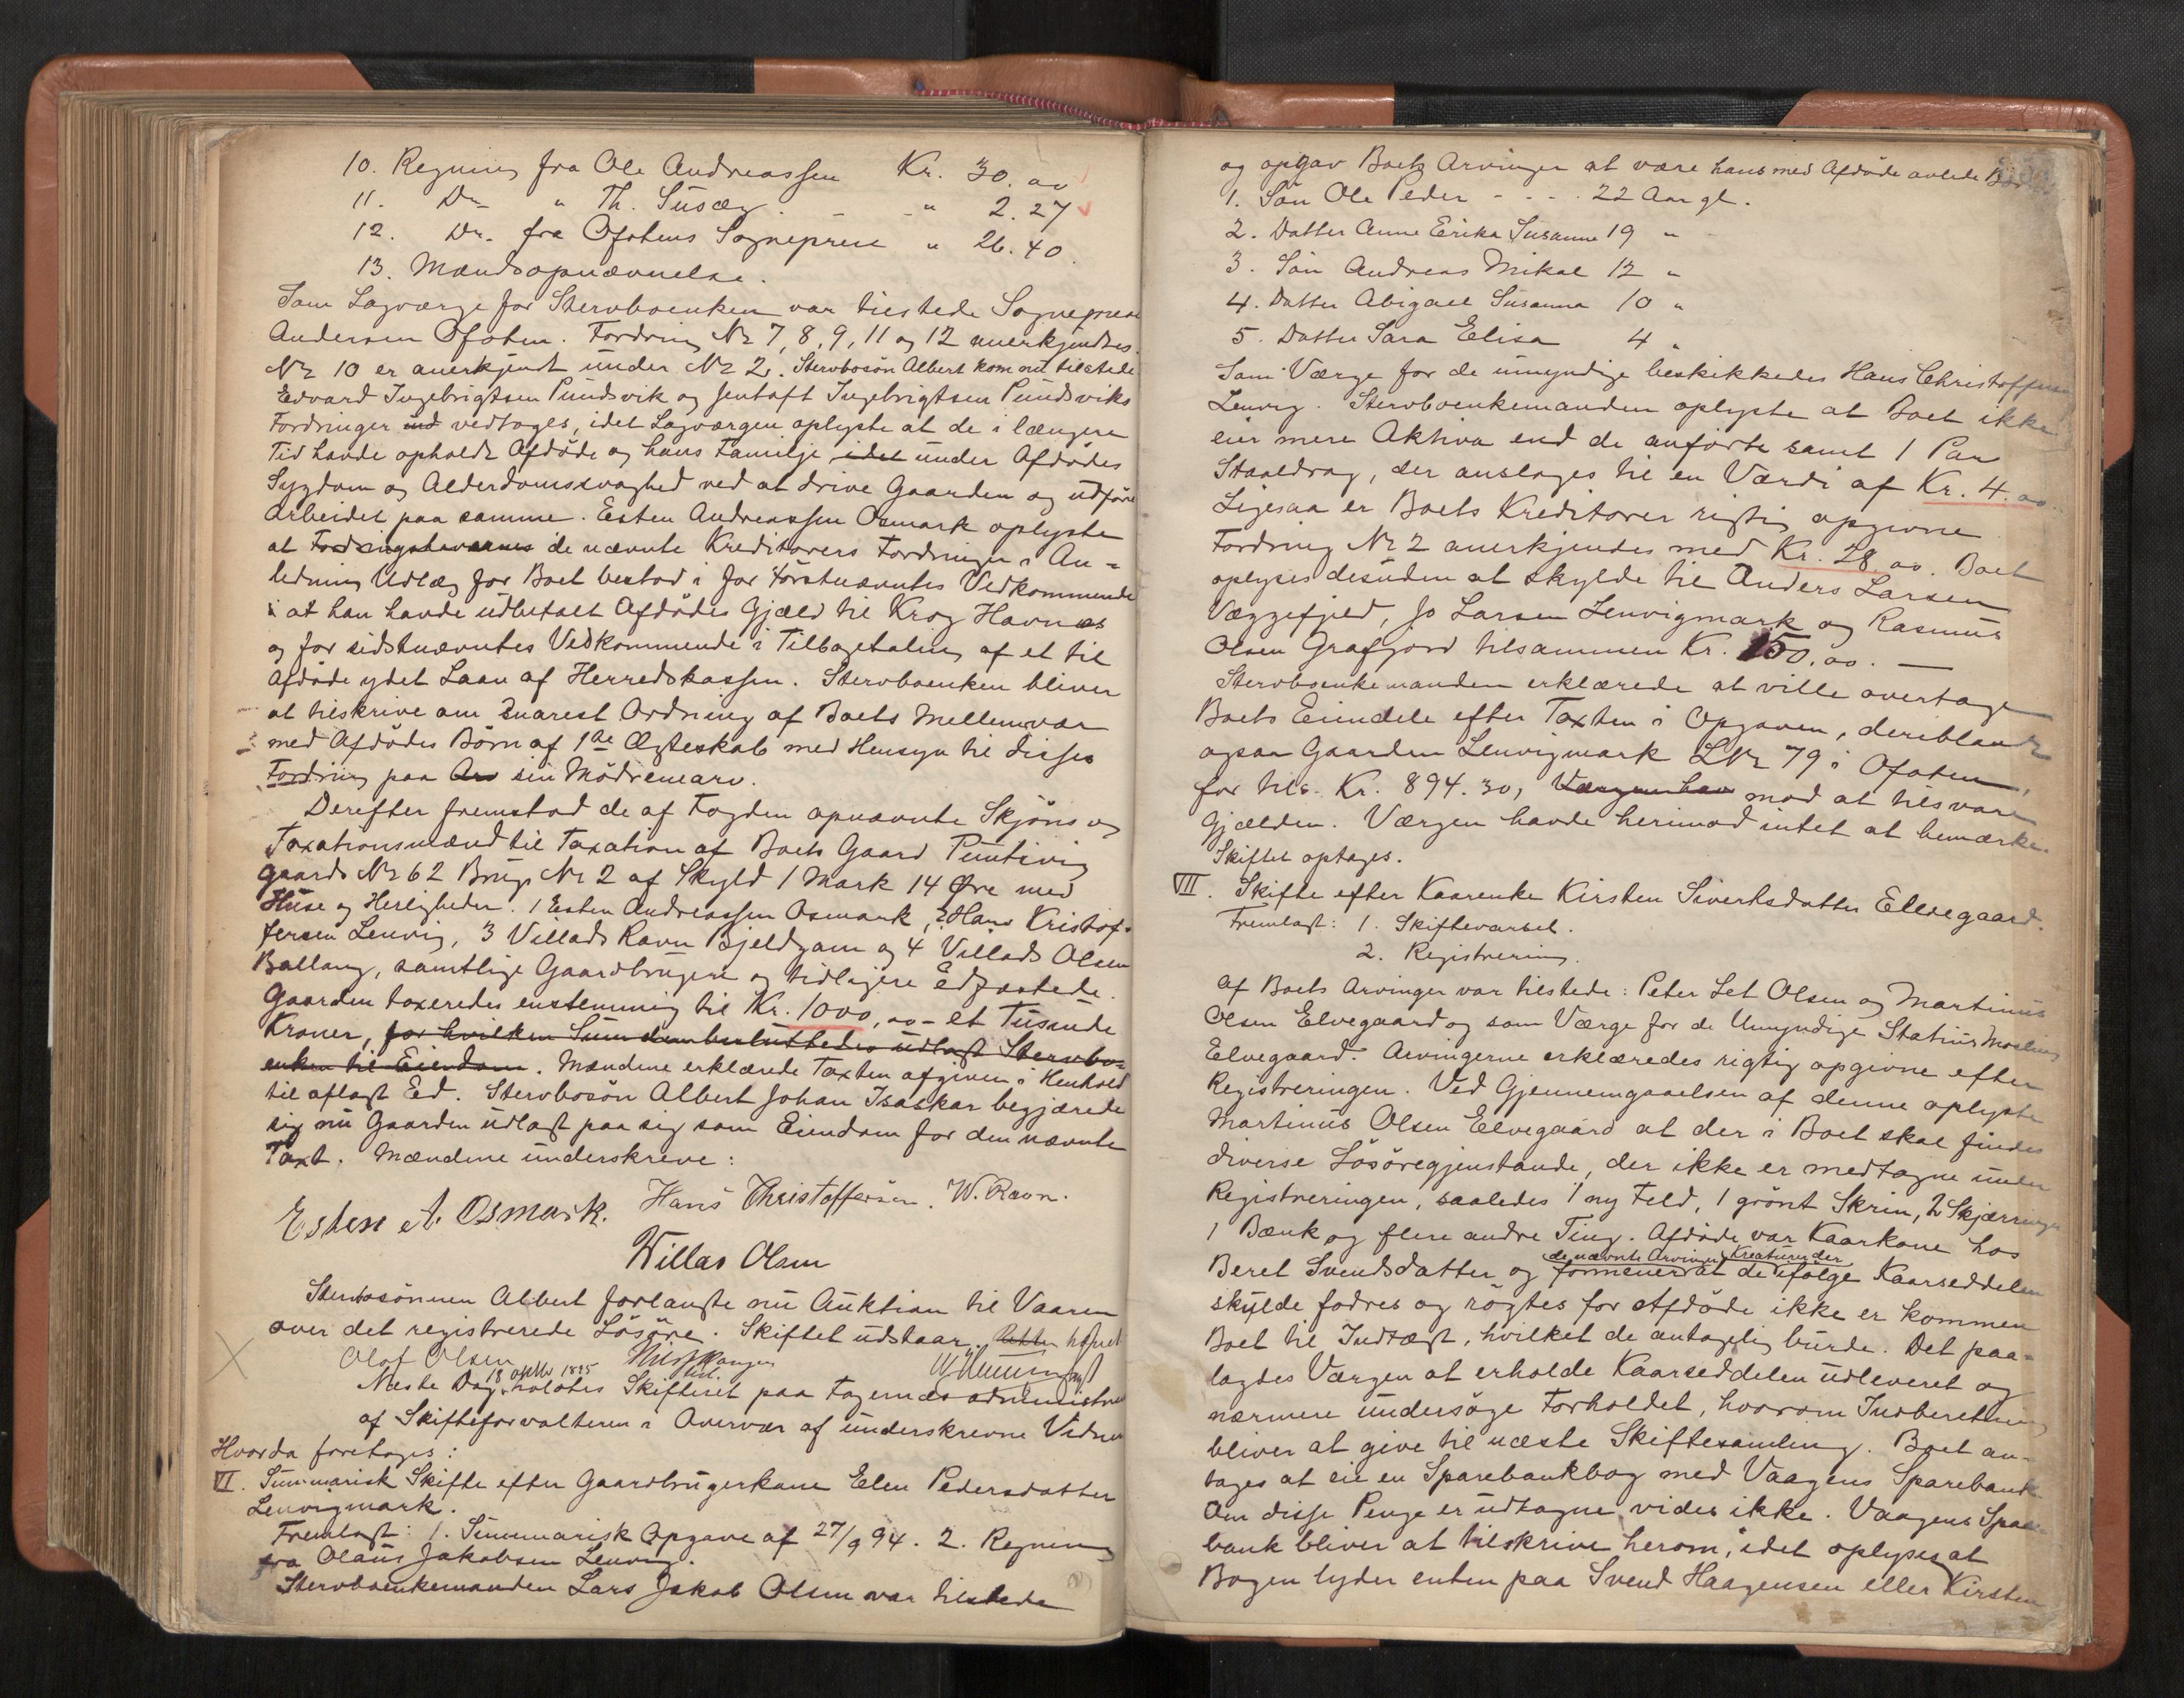 10. Regning fra Ole Andreassen Kr. 30.00
11. Do " Th. Susæg. - - " 2.27
12. Do. fra Ofotens Sogneprest " 26.40.
13. Mændsopnævnelse.
Som Lagværge for Stervboenken var tilstede Sogneprest
Andersen Ofoten. Fordring No 7, 8, 9, 11 og 12 anerkjendtes.
No 10 er anerkjendt under No 2. Stervbosön Albert kom nu tilstede
Edvard Ingebrigtsen Pundsvik og Jentoft Ingebrigtsen Pundsviks
Fordringer ind vedtages, idet Lagværgen oplyste at de i længere
Tid havde opholdt Afdöde og hans Familje, idet under Afdödes
Sygdom og Alderdomssvaghed ved at drive Gaarden og udföre
Arbeidet paa samme. Esten Andreassen Osmark oplyste
at Fordringshavernes de nævnte Kreditorers Fordringer i An-
ledning Udlæg for Boet bestod i for Förstnævntes Vedkommende
i at han havde udbetalt Afdödes Gjæld til Krog Havnæs
og for sidstnævntes Vedkommende i Tilbagetaling af et til
Afdöde ydet Laan af Herredskassen. Stervboenken bliver
at tilskrive om snarest Ordning af Boets Mellemvær
med Afdödes Börn af 1de Ægteskab med Hensyn til disses
Fordring paa Arv sin Mödrenearv.
Derefter fremstod de af Fogden opnævnte Skjöns og
Taxationsmænd til Taxation af Boets Gaard Puntsvig
Gaards No 62 Brugs No 2 af Skyld 1 Mark 14 Øre med
Huse og Herligheder. 1 Esten Andreassen Osmark, 2 Hans Kristof-
fersen Lenvig, 3 Villads Ravn Bjeldgam og 4 Villads Olsen
Ballang, samtlige Gaardbrugere og tidligere Edfæstede.
Gaarden taxeredes enstemmig til Kr. 1000,00 - et Tusinde
Kroner, for hvilken Sum den besluttedes udlagt Stervbo-
enken til Eiendom. Mændene erklærede Taxten afgiven i Henhold
til aflagt Ed. Stervbosön Albert Johan Isaskar begjærede
sig nu Gaarden udlagt paa sig som Eiendom for den nævnte
Taxt. Mændene underskreve:
Esten A. Osmark. Hans Christoffersen. W. Ravn.
Willas Olsen
Stervbosönnen Albert forlangte nu Auktion til Vaaren
over det registrerede Lösöre. Skiftet udstaar. Retten hævet
Olaf Olsen
Næste Dag 18 1895 holdtes Skifteret paa Fagernæs administreret
af Skifteforvalteren i Overvær af underskrevne Vidner
Hvorda foretages:
VI. Summarisk Skifte efter Gaardbrugerkone Elen Pedersdatter
Lenvigmark.
Fremlagt: 1. Summarisk Opgave af 27/9 94. 2. Regning
fra Olaus Jakobsen Lenvig.
Stervboenkemanden Lars Jakob Olsen var tilstede
og opgav Boets Arvinger at være hans med Afdöde avlede Börn
1. Sön Ole Peder - - - 22 Aar gl.
2. Datter Anne Erika Susanne 19 "
3. Sön Andreas Mikal 12 "
4. Datter Abigael Susanna 10 "
5. Datter Sara Elisa 4 "
Som Værge for de umyndige beskikkedes Hans Christoffersen
Lenvig. Stervboenkemanden oplyste at Boet ikke
eier mere Aktiva end de anförte samt 1 Par
Staaldrag, der anslages til en Værdi af Kr. 4.00
Ligesaa er Boets Kreditorer rigtig opgivne
Fordring No 2 anerkjendes med Kr. 28.00. Boet
oplyses desuden at skylde til Anders Larsen
Væggefjeld, Jo Larsen Lenvigmark og Rasmus
Olsen Grafjord tilsammen Kr. 150.00. —
Stervboenkemanden erklærede at ville overtage
Boets Eiendele efter Taxten i Opgaven, deriblandt
ogsaa Gaarden Lenvigmark LNr 79 i Ofoten,
for tils. Kr. 894.30, Værgen hav mod at tilsvare
Gjælden. Værgen havde herimod intet at bemærke.
Skiftet optages.
VII. Skifte efter Kaarenke Kirsten Sivertsdatter Elvegaard.
Fremlagt: 1. Skiftevarsel.
2. Registrering.
Af Boets Arvinger var tilstede: Peter Let Olsen og Martinus
Olsen Elvegaard og som Værge for de Umyndige Statius
Elvegaard. Arvingerne erklæredes rigtig opgivne efter
Registreringen. Ved Gjennemgaaelsen af denne oplyste
Martinus Olsen Elvegaard at der i Boet skal findes
diverse Lösöregjenstande, der ikke er medtagne under
Registreringen, saaledes 1 ny Feld, 1 grönt Skrin, 2 Skjærringer
1 Bænk og flere andre Ting. Afdöde var Kaarkone hos
Beret Svendsdatter og de nævnte Arvinger formener at de Kreaturer der ifölge Kaarseddelen
skulde fodres og rögtes for Afdöde ikke er kommen
Boet til Indtægt, hvilket de antagelig burde. Det paa-
lagdes Værgen at erholde Kaarseddelen udleveret og
nærmere undersöge Forholdet, hvorom Indberetning
bliver at give til næste Skiftesamling. Boet an-
tages at eie en Sparebankbog med Vaagens Sparebank
Om disse Penge er udtagne vides ikke. Vaagens Spare-
bank bliver at tilskrive herom, idet oplyses at
Bogen lyder enten paa Svend Haagensen eller Kirsten